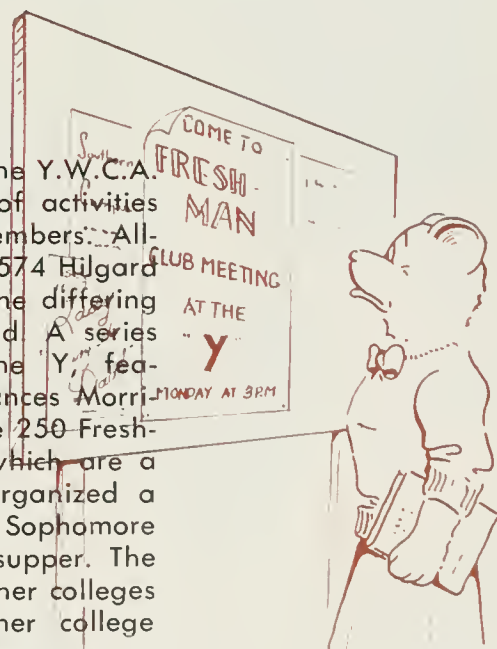 COME TO
FRESH-
MAN
CLUB MEETING
AT THE
"Y"
MONDAY AT 3 P.M.
Southern
ne Y.W.C.A.
of activities
embers. All-
574 Hilgard
ne differing
d A series
ne Y, fea-
nces Morri-
e 250 Fresh-
which are a
organized a
Sophomore
supper. The
ner colleges
ner college